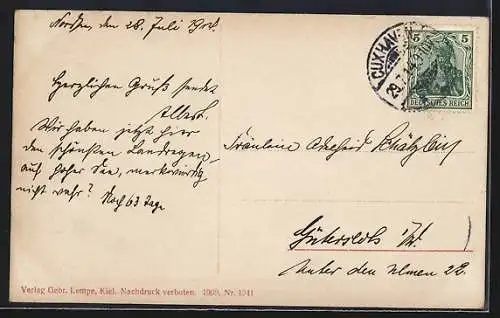 Nordsee, den 28. Juli
Herzlichen Gruß sendet
Albert.
Wir haben jetzt hier
den schönsten Landregen,
auf hoher See, merkwürdig
nicht wahr? Noch 63 Tage
CUXHAVEN
5 5
DEUTSCHES REICH
Fräulein Adelheid
Gütersloh i/W.
Unter den Ulmen 22.
Verlag Gebr. Lempe, Kiel. Nachdruck verboten. 1909. Nr. 1241